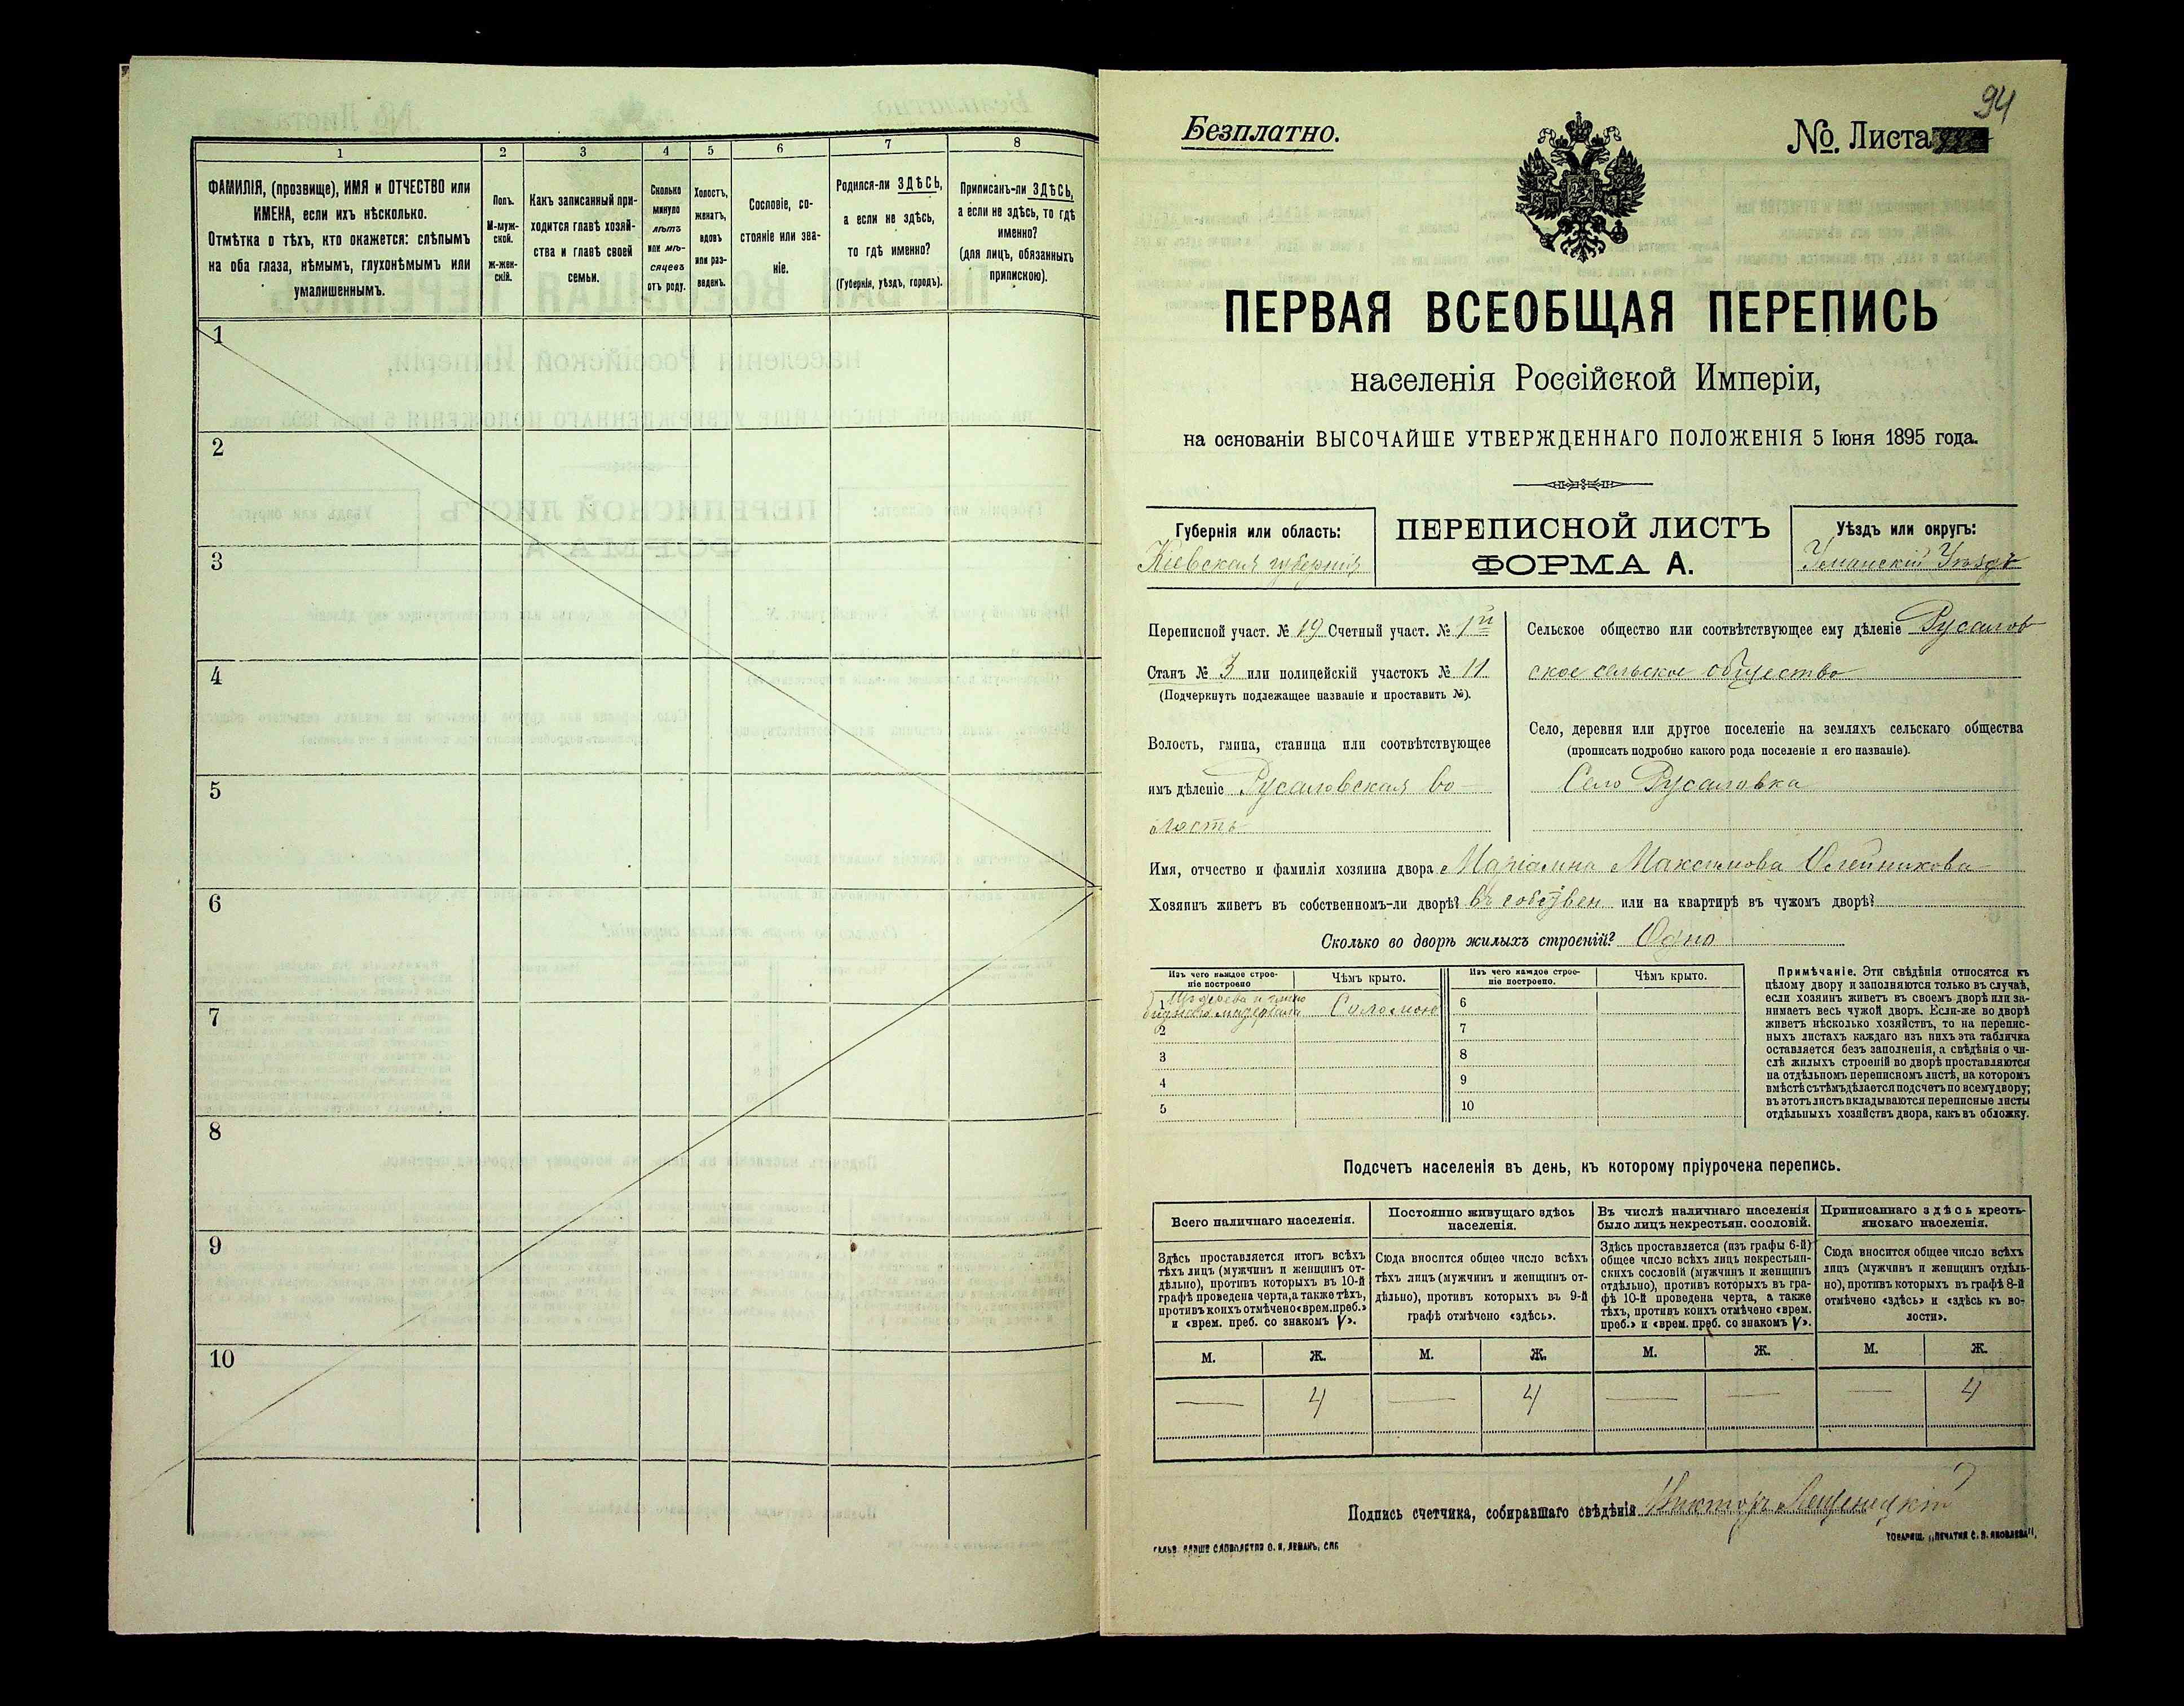 1
2
3
4
5
6
7
8
ФАМИЛІЯ, (прозвище), ИМЯ и ОТЧЕСТВО или
ИМЕНА, если ихъ нѣсколько.
Отмѣтка о тѣхъ, кто окажется: слѣпымъ
на оба глаза, нѣмымъ, глухонѣмымъ или
умалишеннымъ.
Полъ.
М-муж-
ской.
ж-жен-
скій.
Какъ записанный при-
ходится главѣ хозяй-
ства и главѣ своей
семьи.
Сколько
минуло
лѣтъ
или мѣ-
сяцевъ
отъ роду.
Холостъ,
женатъ,
вдовъ
или раз-
веденъ.
Сословіе, со-
стояніе или зва-
ніе.
Родился-ли ЗДѢСЬ,
а если не здѣсь,
то гдѣ именно?
(Губернія, уѣздъ, городъ).
Приписанъ-ли ЗДѢСЬ,
а если не здѣсь, то гдѣ
именно?
(для лицъ, обязанныхъ
припискою).
1
2
3
4
5
6
7
8
9
10
94
Безплатно.
№ Листа
ПЕРВАЯ ВСЕОБЩАЯ ПЕРЕПИСЬ
населенія Россійской Имперіи,
на основаніи ВЫСОЧАЙШЕ УТВЕРЖДЕННАГО ПОЛОЖЕНІЯ 5 Іюня 1895 года.
Губернія или область:
Кіевская губернія
ПЕРЕПИСНОЙ ЛИСТЪ
ФОРМА А.
Уѣздъ или округъ:
Уманскій Уѣздъ
Переписной участ. № 19 Счетный участ. № 1й
Станъ № 3 или полицейскій участокъ № 11
(Подчеркнуть подлежащее названіе и проставить №).
Волость, гмина, станица или соотвѣтствующее
имъ дѣленіе Русаловская во-
лость
Сельское общество или соотвѣтствующее ему дѣленіе Русалов
ское сельское общество
Село, деревня или другое поселеніе на земляхъ сельскаго общества
(прописать подробно какого рода поселеніе и его названіе).
Село Русаловка
Имя, отчество и фамилія хозяина двора Маріамна Максимова Олейникова
Хозяинъ живетъ въ собственномъ-ли дворѣ? Въ собствен или на квартирѣ въ чужомъ дворѣ?
Сколько во дворѣ жилыхъ строеній? Одно
Изъ чего каждое строе-
ніе построено
Чѣмъ крыто.
Изъ чего каждое строе-
ніе построено.
Чѣмъ крыто.
1 Изъ дерева и глино
битнаго матеріала Соломою
2
3
4
5
6
7
8
9
10
Примѣчаніе. Эти свѣдѣнія относятся къ
цѣлому двору и заполняются только въ случаѣ,
если хозяинъ живетъ въ своемъ дворѣ или за-
нимаетъ весь чужой дворъ. Если-же во дворѣ
живетъ нѣсколько хозяйствъ, то на перепис-
ныхъ листахъ каждаго изъ нихъ эта табличка
оставляется безъ заполненія, а свѣдѣнія о чи-
слѣ жилыхъ строеній во дворѣ проставляются
на отдѣльномъ переписномъ листѣ, на которомъ
вмѣстѣ съ тѣмъ дѣлается подсчетъ по всему двору;
въ этотъ листъ вкладываются переписные листы
отдѣльныхъ хозяйствъ двора, какъ въ обложку.
Подсчетъ населенія въ день, къ которому пріурочена перепись.
Всего наличнаго населенія.
Здѣсь проставляется итогъ всѣхъ
тѣхъ лицъ (мужчинъ и женщинъ от-
дѣльно), противъ которыхъ въ 10-й
графѣ проведена черта, а также тѣхъ,
противъ коихъ отмѣчено «врем. преб.»
и «врем. преб. со знакомъ V».
Постоянно живущаго здѣсь
населенія.
Сюда вносится общее число всѣхъ
тѣхъ лицъ (мужчинъ и женщинъ от-
дѣльно), противъ которыхъ въ 9-й
графѣ отмѣчено «здѣсь».
Въ числѣ наличнаго населенія
было лицъ некрестьян. сословій.
Здѣсь проставляется (изъ графы 6-й)
общее число всѣхъ лицъ некрестьян-
скихъ сословій (мужчинъ и женщинъ
отдѣльно), противъ которыхъ въ гра-
фѣ 10-й проведена черта, а также
тѣхъ, противъ коихъ отмѣчено «врем.
преб.» и «врем. преб. со знакомъ V».
Приписаннаго здѣсь кресть-
янскаго населенія.
Сюда вносится общее число всѣхъ
лицъ (мужчинъ и женщинъ отдѣль-
но), противъ которыхъ въ графѣ 8-й
отмѣчено «здѣсь» и «здѣсь къ во-
лости».
М. Ж. М. Ж. М. Ж. М. Ж.
— 4 — 4 — — — 4
Подпись счетчика, собиравшаго свѣдѣнія Викторъ Лещенецкій
СЛОВОЛИТНЯ О. И. ЛЕМАНЪ, СПБ
ТОВАРИЩ. „ПЕЧАТНЯ С. П. ЯКОВЛЕВА".